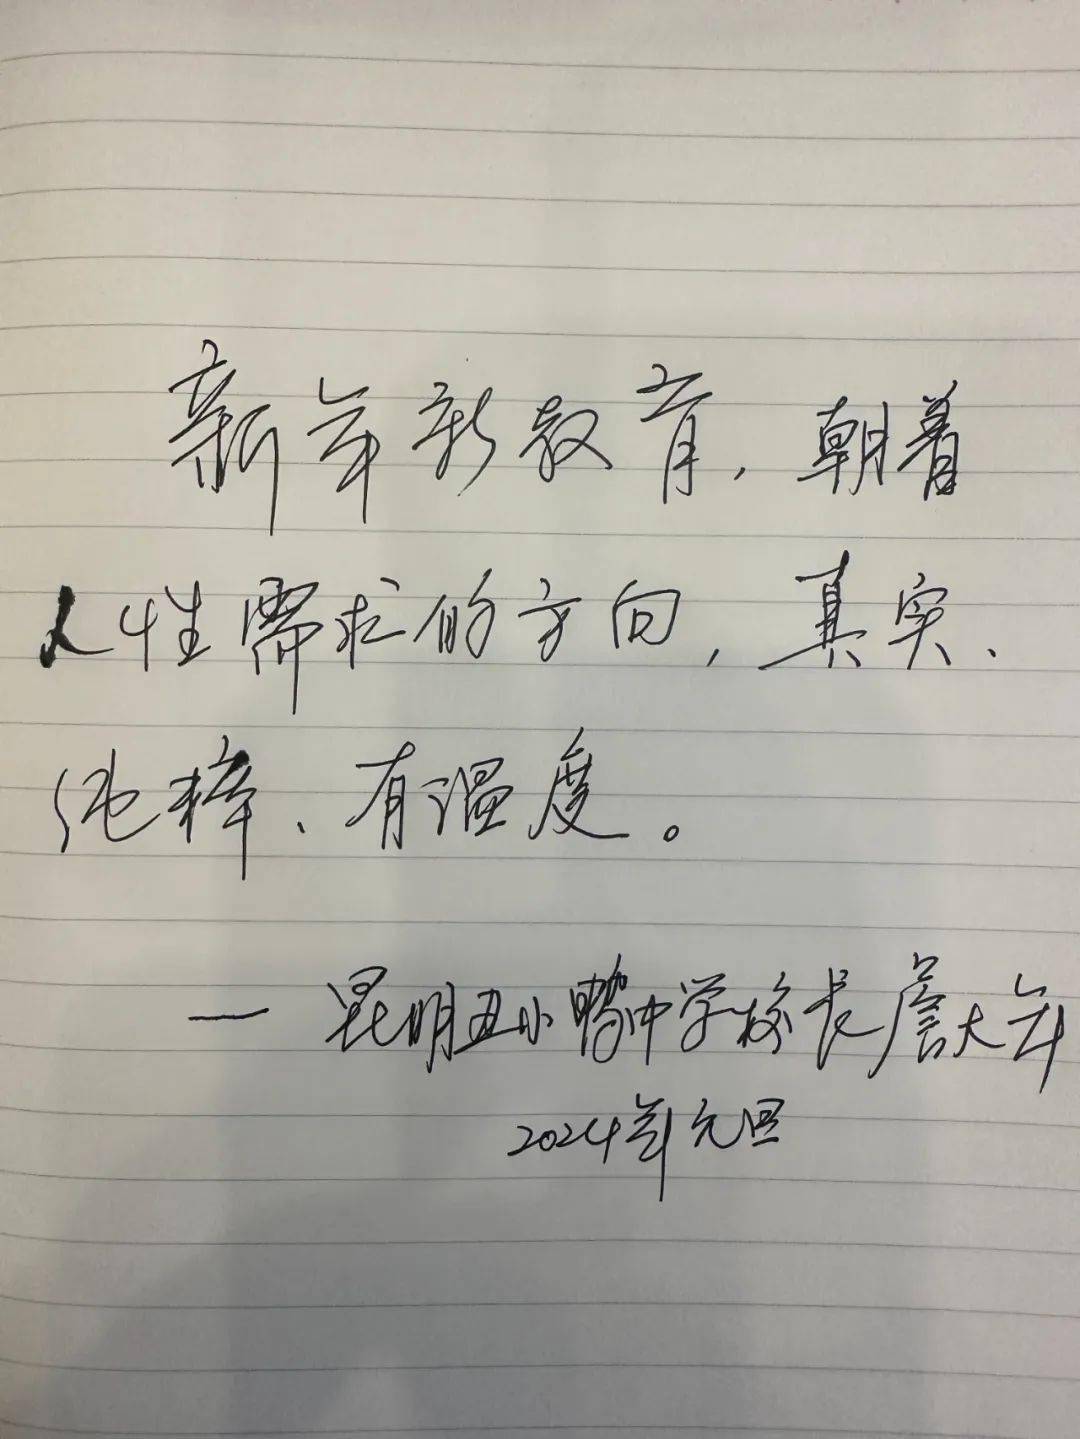 新年新教育，朝着
人性需求的方向，真实、
纯粹、有温度。
— 昆明丑小鸭中学校长詹大年
2024年元旦